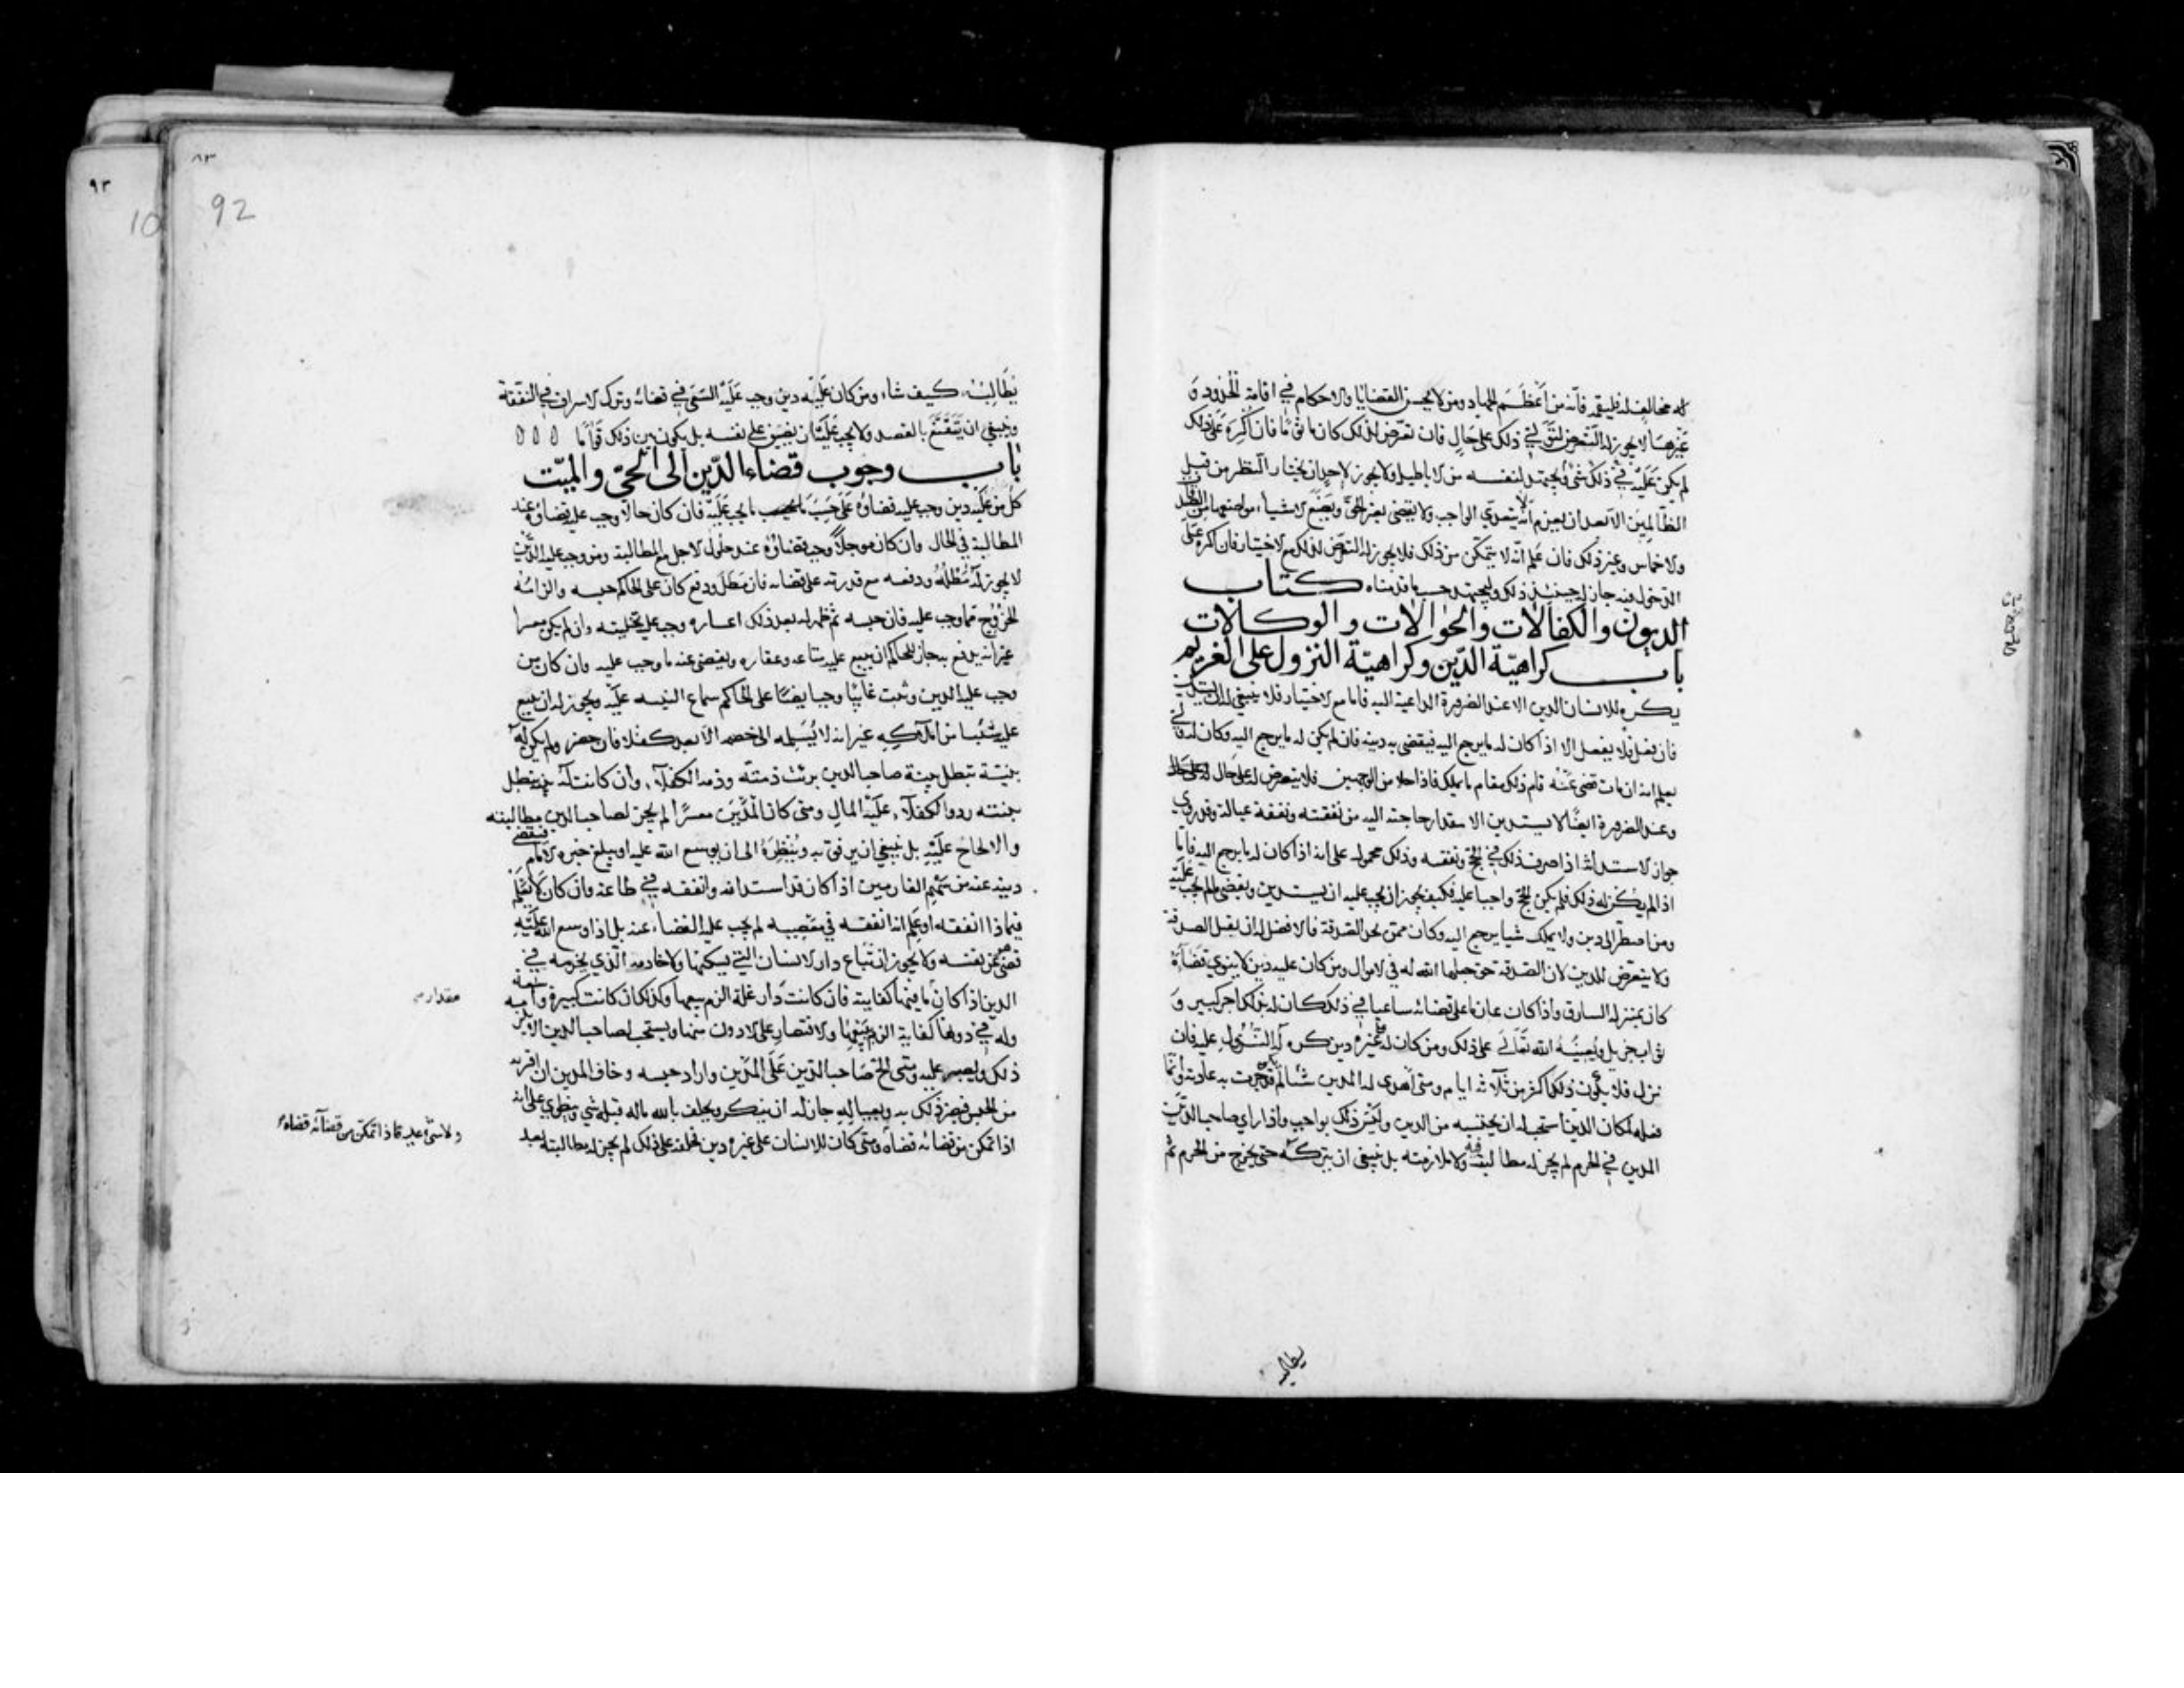 له مخالف له فليقم فانه من اعظم الجهاد ومن لا يحسن القضايا والاحكام في اقامة الحدود و
غيرها لا يجوز له التعرض لتولي ذلك على حال فان تعرض لذلك كان ماثوما فان اكره على ذلك
لم يكن عليه في ذلك شي ويجتهد لنفسه من الاباطيل ولا يجوز لاحد ان يختار النظر من قبل
الظالمين الا بعد ان يعزم انه لا يتعدى الواجب ولا يقضي بغير الحق ويضع الاشياء مواضعها من
والاخماس وغير ذلك فان علم انه لا يتمكن من ذلك فلا يجوز له التعرض لذلك مع الاختيار فان اكره على
الدخول فيه جاز له حينئذ ذلك وليجتهد حسب ما قدمناه كتاب
الديون والكفالات والحوالات والوكالات
باب كراهية الدين وكراهية النزول على الغريم
يكره للانسان الدين الا عند الضرورة الداعية اليه فاما مع الاختيار فلا ينبغي له ان يستدين
فان فعل فلا يفعل الا اذا كان له ما يرجع اليه فيقضي به دينه فان لم يكن له ما يرجع اليه وكان له ولي
يعلم انه ان مات قضى عنه قام ذلك مقام ما يملك فاذا خلا من الوجهين فلا يتعرض له على حال
وعند الضرورة ايضا لا يستدين الا مقدار حاجته اليه من نفقته ونفقة عياله وقد روي
جواز الاستدانة اذا صرف ذلك في الحج ونفقه وذلك محمول على انه اذا كان له ما يرجع اليه فاما
اذا لم يكن له ذلك فلم يكن الحج واجبا عليه فكيف يجوز ان يجب عليه ان يستدين ويقضي ما لم يجب عليه
ومن اضطر الى دين ولا يملك شيا يرجع اليه وكان ممن تحل الصدقة فالافضل له ان يقبل الصدقة
ولا يتعرض للدين لان الصدقة حق جعلها الله له في الاموال ومن كان عليه دين لا ينوي قضاءه
كان بمنزلة السارق واذا كان عازما على قضائه ساعيا في ذلك كان له بذلك اجر كبير و
ثواب جزيل ويعينه الله تعالى على ذلك ومن كان له على غيره دين كره له النزول عليه فان
نزل فلا يكون ذلك اكثر من ثلاثة ايام ومتى اهدى له المدين شيئا لم تجر به عادته وانما
فعله لمكان الدين استحب له ان يحتسبه من الدين وليس ذلك بواجب واذا راى صاحب الدين
المدين في الحرم لم يجز له مطالبته فيه ولا ملازمته بل ينبغي ان يتركه حتى يخرج من الحرم ثم
يطالبه
٨٣
92
٩٣
10
يطالبه كيف شاء ومن كان عليه دين وجب عليه السعي في قضائه وترك الاسراف في النفقة
وينبغي ان يتقنع بالقصد ولا يجب عليه ان يضيق على نفسه بل يكون بين ذلك قواما
باب وجوب قضاء الدين الى الحي والميت
كل من عليه دين وجب عليه قضاؤه على حسب ما يجب عليه فان كان حالا وجب عليه قضاؤه عند
المطالبة في الحال وان كان موجلا وجب قضاؤه عند حلول الاجل مع المطالبة ومن وجب عليه الدين
لا يجوز له مطله ودفعه مع قدرته على قضائه فان مطل ودفع كان على الحاكم حبسه والزامه
الخروج مما وجب عليه فان حبسه ثم ظهر له بعد ذلك اعساره وجب عليه تخليته وان لم يكن معسرا
غير انه يدفع به جاز للحاكم ان يبيع عليه متاعه وعقاره ويقضي عنه ما وجب عليه وان كان من
وجب عليه الدين وثبت غايبا وجب ايضا على الحاكم سماع البينة عليه ويجوز له ان يبيع
عليه شئيا من املاكه غير انه لا يسلمه الى خصمه الا بعد كفلاء فان حضر ولم يكن له
بينة تبطل بينة صاحب الدين برئت ذمته وذمة الكفلاء وان كانت له بينة تبطل
بينته ردوا الكفلاء عليه المال ومتى كان المدين معسرا لم يجز لصاحب الدين مطالبته
والالحاح عليه بل ينبغي ان يرفق به وينظره الى ان يوسع الله عليه او يبلغ خبره الامام فيقضي
دينه عنه من سهم الغارمين اذا كان قد استدانه وانفقه في طاعة وان كان لا يعلم
فيماذا انفقه او علم انه انفقه في معصية لم يجب عليه القضاء عنه بل اذا وسع الله عليه
قضى عن نفسه ولا يجوز ان تباع دار الانسان التي يسكنها ولا خادمه الذي يخدمه في
الدين اذا كان ما فيها كفايته فان كانت دار غلة الزم بيعها وكذلك ان كانت كبيرة واسعة
مقدار
وله في دونها كفاية الزم بيعها والاقتصار على الادون منها ويستحب لصاحب الدين
ذلك ويصبر عليه ومتى الح صاحب الدين على المدين واراد حبسه وخاف المدين ان اقر به
من الحبس فيضر ذلك به وبعياله جاز له ان ينكر ويحلف بالله ماله قبله شي وينطوي على انه
اذا تمكن من قضائه قضاه ومتى كان للانسان على غيره دين فحلفه على ذلك لم يجز له مطالبته بعد
ولا شي عليه فاذا تمكن من قضائه قضاه